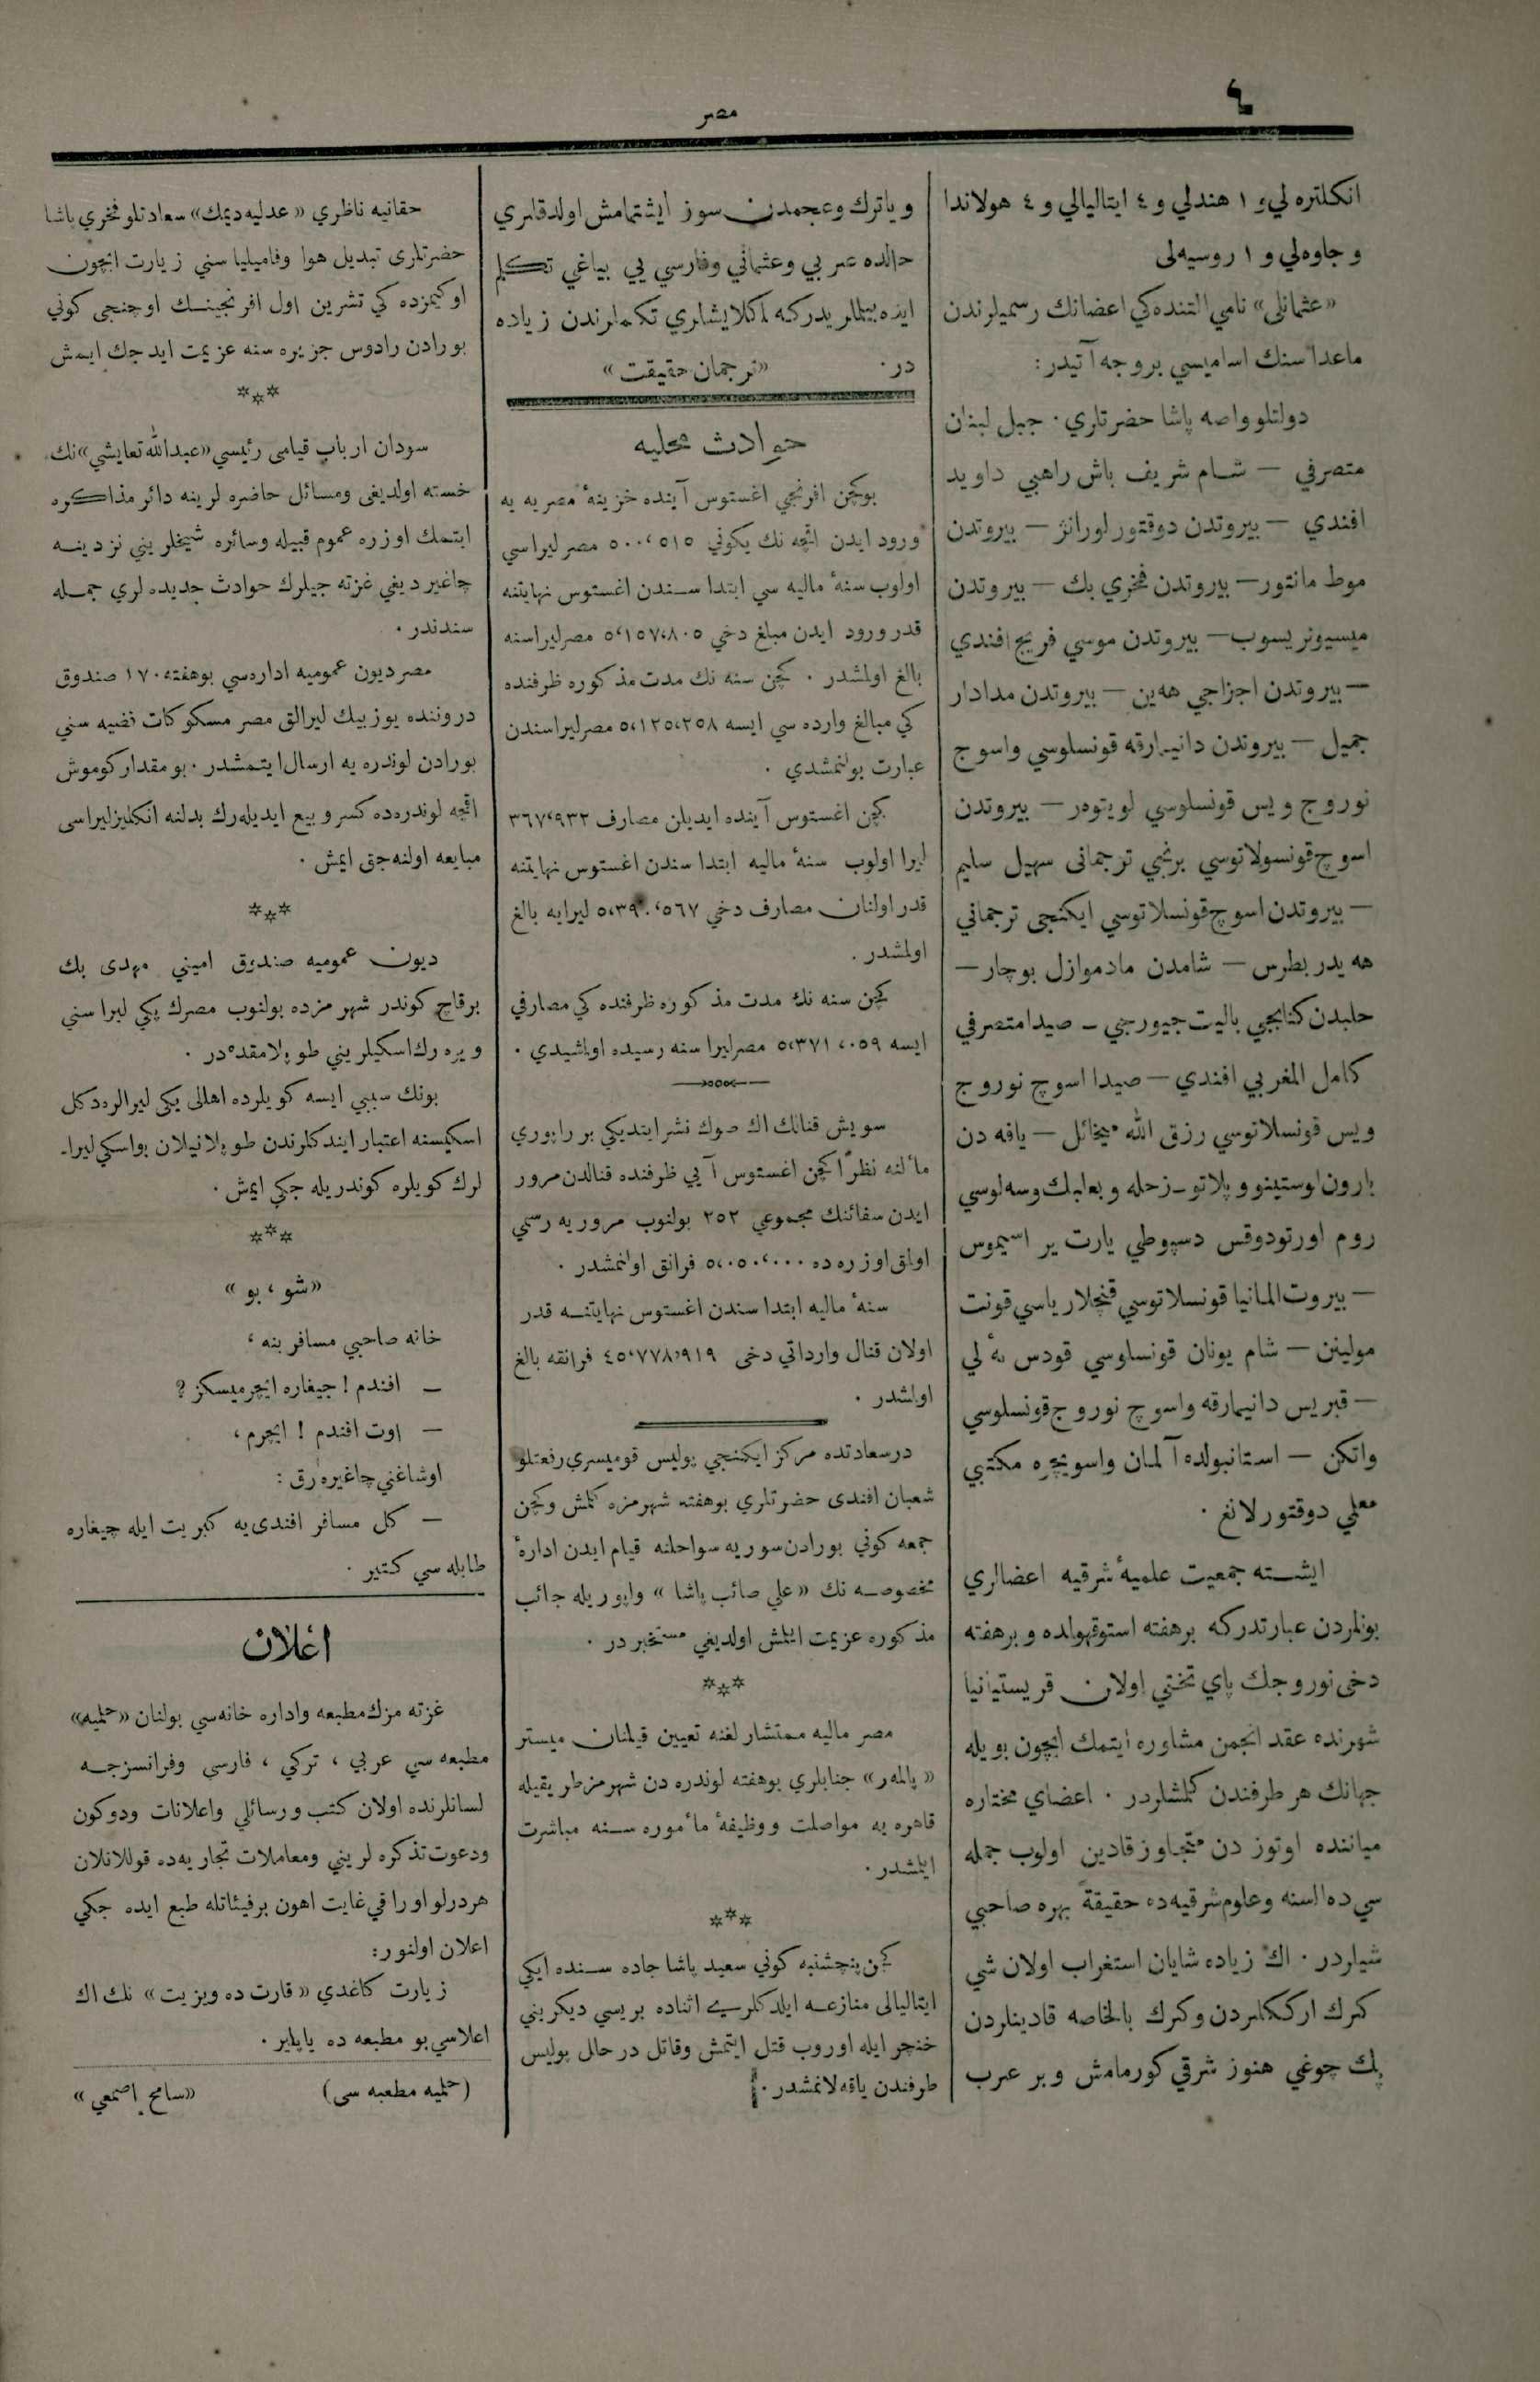 ٤
مصر
انكلتره لي و ١ هندلي و ٤ ايتاليالي و ٤ هولاندا
و جاوه‌لي و ١ روسيه‌لى
«عثمانلى» نامي التنده كي اعضانك رسميلرندن
ماعداسنك اساميسي بروجه آتيدر:
دولتلو واصه پاشا حضرتلري . جبل لبنان
متصرفي — شام شريف باش راهبي داويد
افندي — بيروتدن دوقتور لورانژ — بيروتدن
موط مانتور — بيروتدن فخري بك — بيروتدن
ميسيونر يسوب — بيروتدن موسي فريج افندي
— بيروتدن اجزاجي هه‌ين — بيروتدن مدادار
جميل — بيروتدن دانيمارقه قونسلوسي واسوج
نوروج ويس قونسلوسي لويتوه‌ر — بيروتدن
اسوج قونسولاتوسي برنجي ترجمانى سهيل سليم
— بيروتدن اسوج قونسلاتوسي ايكنجى ترجماني
هه يدر بطرس — شامدن مادموازل بوچار —
حلبدن كتابجي باليت جيورجي — صيدا متصرفي
كامل المغربي افندي — صيدا اسوج نوروج
ويس قونسلاتوسي رزق الله ميخائل — يافه دن
بارون اوستينوو پلاتو — زحله و بعلبك وسه لوسي
روم اورتودوقس دسپوطي يارت ير اسيموس
— بيروت المانيا قونسلاتوسي قنچلارياسي قونت
مولينن — شام يونان قونسلوسي قودس له لي
— قبريس دانيمارقه واسوج نوروج قونسلوسي
واتكن — استانبولده آلمان واسويچره مكتبي
معلمي دوقتور لانغ .
ايشته جمعيت علميهٔ شرقيه اعضالري
بونلردن عبارتدركه برهفته استوقهولده و برهفته
دخى نوروجك پاي تختي اولان قريستيانيا
شهرنده عقد انجمن مشاوره ايتمك ايچون بويله
جهانك هر طرفندن كلمشلردر . اعضاي مختاره
مياننده اوتوز دن متجاوز قادين اولوب جمله
سي ده السنه وعلوم شرقيه ده حقيقةً بهره صاحبي
شيلردر . اك زياده شايان استغراب اولان شي
كرك ارككلردن وكرك بالخاصه قادينلردن
پك چوغي هنوز شرقي كورمامش وبر عرب
وياترك وعجمدن سوز ايشتمامش اولدقلري
حالده عربي وعثماني وفارسي يي بياغي تكلم
ايده بيلملريدركه اكلايشلري تكلملرندن زياده
در . «ترجمان حقيقت»
حوادث محليه
بوكچن افرنجي اغستوس آينده خزينهٔ مصريه يه
ورود ايدن اقچه نك يكوني ٥٠٠،٥١٥ مصر ليراسي
اولوب سنهٔ ماليه سي ابتداسندن اغستوس نهايتنه
قدر ورود ايدن مبلغ دخي ٥،١٥٧،٨٠٥ مصرليراسنه
بالغ اولمشدر . كچن سنه نك مدت مذكوره ظرفنده
كي مبالغ وارده سي ايسه ٥،١٢٥،٢٥٨ مصرليراسندن
عبارت بولنمشدي .
كچن اغستوس آينده ايديلن مصارف ٣٦٧،٩٣٢
ليرا اولوب سنهٔ ماليه ابتداسندن اغستوس نهايتنه
قدر اولنان مصارف دخي ٥،٣٩٠،٥٦٧ ليرايه بالغ
اولمشدر .
كچن سنه نك مدت مذكوره ظرفنده كي مصارفي
ايسه ٥،٣٧١،٠٥٩ مصرليراسنه رسيده اولمشيدي .
سويش قنالك اك صوك نشر ايتديكي بر راپوري
مألنه نظرًا كچن اغستوس آيي ظرفنده قنالدن مرور
ايدن سفائنك مجموعي ٢٥٢ بولنوب مروريه رسمي
اولق اوزره ده ٥،٠٥٠،٠٠٠ فرانق اولنمشدر .
سنهٔ ماليه ابتداسندن اغستوس نهايتنه قدر
اولان قنال وارداتي دخى ٤٥،٧٧٨،٩١٩ فرانقه بالغ
اولمشدر .
درسعادتده مركز ايكنجي پوليس قوميسري رفعتلو
شعبان افندى حضرتلري بوهفته شهرمزه كلمش وكچن
جمعه كوني بورادن سوريه سواحلنه قيام ايدن ادارهٔ
مخصوصه نك «علي صائب پاشا» واپوريله جانب
مذكوره عزيمت ايلمش اولديغي مستخبردر .
***
مصر ماليه مستشارلغنه تعيين قيلنان ميستر
«پالمه‌ر» جنابلري بوهفته لوندره دن شهرمز طريقيله
قاهره يه مواصلت ووظيفهٔ مأموره سنه مباشرت
ايلمشدر .
***
كچن پنجشنبه كوني سعيد پاشا جاده سنده ايكي
ايتاليالى منازعه ايلدكلري اثناده بريسي ديكريني
خنچر ايله اوروب قتل ايتمش وقاتل درحال پوليس
طرفندن ياقه‌لانمشدر .
حقانيه ناظري «عدليه ديمك» سعادتلو فخري پاشا
حضرتلرى تبديل هوا وفاميليا سني زيارت ايچون
اوكيمزده كي تشرين اول افرنجينك اوچنجى كوني
بورادن رادوس جزيره سنه عزيمت ايده جك ايمش
***
سودان ارباب قيامى رئيسي «عبدالله تعايشي» نك
خسته اولديغى ومسائل حاضره لرينه دائر مذاكره
ايتمك اوزره عموم قبيله وسائره شيخلريني نزدينه
چاغيرديغي غزته جيلرك حوادث جديده لري جمله
سندندر .
مصر ديون عموميه اداره‌سي بوهفته ١٧٠ صندوق
دروننده يوزبيك ليرالق مصر مسكوكات فضيه سني
بورادن لوندره يه ارسال ايتمشدر . بومقدار كوموش
اقچه لوندره‌ده كسر و بيع ايديله‌رك بدلنه انكليز ليراسى
مبايعه اولنه جق ايمش .
***
ديون عموميه صندوق اميني مهدى بك
برقاچ كوندر شهرمزده بولنوب مصرك يكي ليراسني
ويره رك اسكيلريني طوپلامقده در .
بونك سببي ايسه كويلرده اهالى يكى ليرالره دكل
اسكيسنه اعتبار ايتدكلرندن طوپلانيلان بواسكي ليرا.
لرك كويلره كوندريله جكي ايمش .
***
«شو ، بو»
خانه صاحبي مسافرينه ،
— افندم ! جيغاره ايچرميسكز ؟
— اوت افندم ! ايچرم ،
اوشاغني چاغيره‌رق :
— كل مسافر افندى يه كبريت ايله چيغاره
طابله سي كتير .
اعلان
غزته مزك مطبعه واداره خانه‌سي بولنان «حليه»
مطبعه سي عربي ، تركي ، فارسى وفرانسزجه
لسانلرنده اولان كتب ورسائلي واعلانات ودوكون
ودعوت تذكره لريني ومعاملات تجاريه‌ده قوللانلان
هردرلو اوراقي غايت اهون برفيئاتله طبع ايده جكي
اعلان اولنور:
زيارت كاغدي «قارت ده ويزيت» نك اك
اعلاسي بو مطبعه ده ياپلير .
(حليه مطعبه سى) «سامح اصمعي»